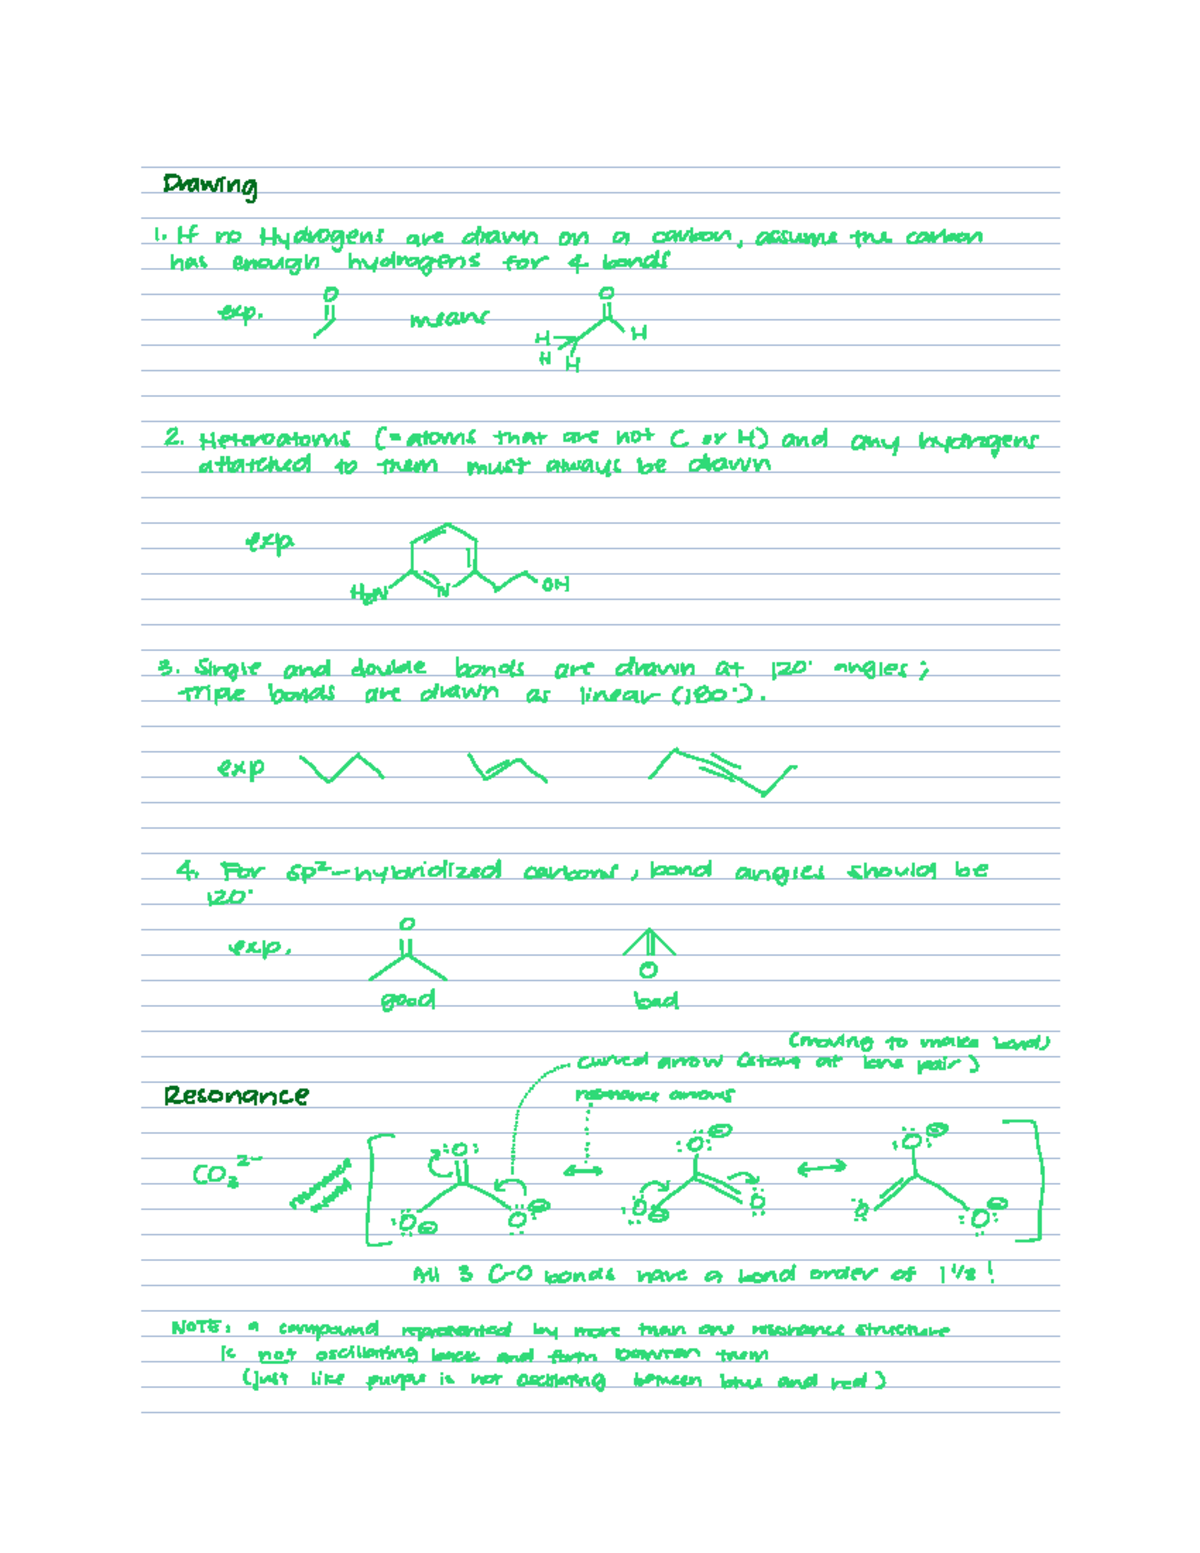 Drawing
1. If no Hydrogens are drawn on a carbon, assume the carbon
has enough hydrogens for 4 bonds
exp.
O
means
O
H
H
H
H
2. Heteroatoms (= atoms that are not C or H) and any hydrogens
attatched to them must always be drawn
exp
H₂N
N
OH
3. Single and double bonds are drawn at 120° angles;
triple bonds are drawn as linear (180°).
exp
4. For sp²-hybridized carbons, bond angles should be
120°
exp.
O
O
good
bad
(moving to make bond)
curved arrow (starts at lone pair)
Resonance
resonance arrows
CO₃²⁻
O
O
O
O
O
O
O
O
O
All 3 C-O bonds have a bond order of 1 1/3!
NOTE: a compound represented by more than one resonance structure
is not oscillating back and form between them
(just like purple is not oscillating between blue and red)